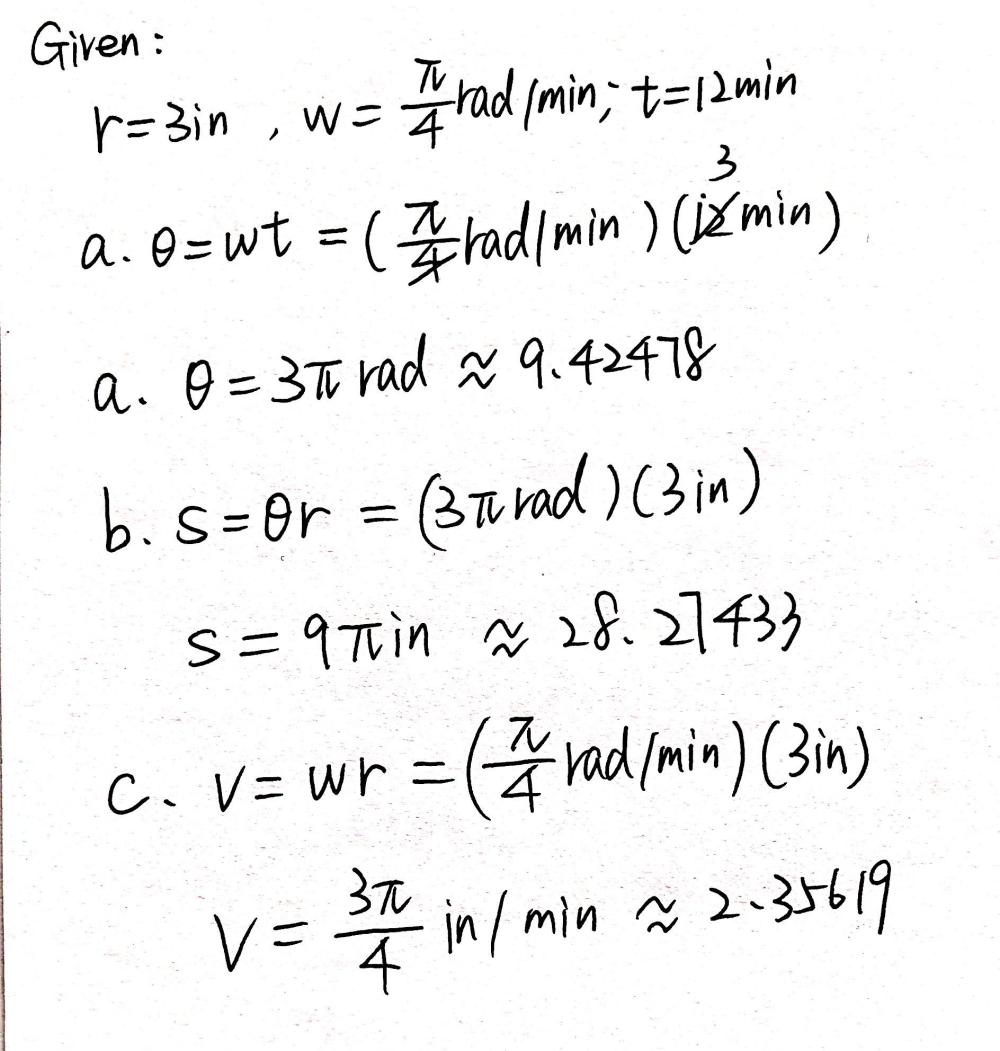 Given:
r=3in , w= π/4 rad/min; t=12min
3
a. θ=wt =(π/4 rad/min)(12min)
a. θ=3π rad ≈ 9.42478
b. s=θr = (3π rad)(3in)
s=9πin ≈ 28.27433
c. v= wr =(π/4 rad/min)(3in)
V= 3π/4 in/min ≈ 2.35619